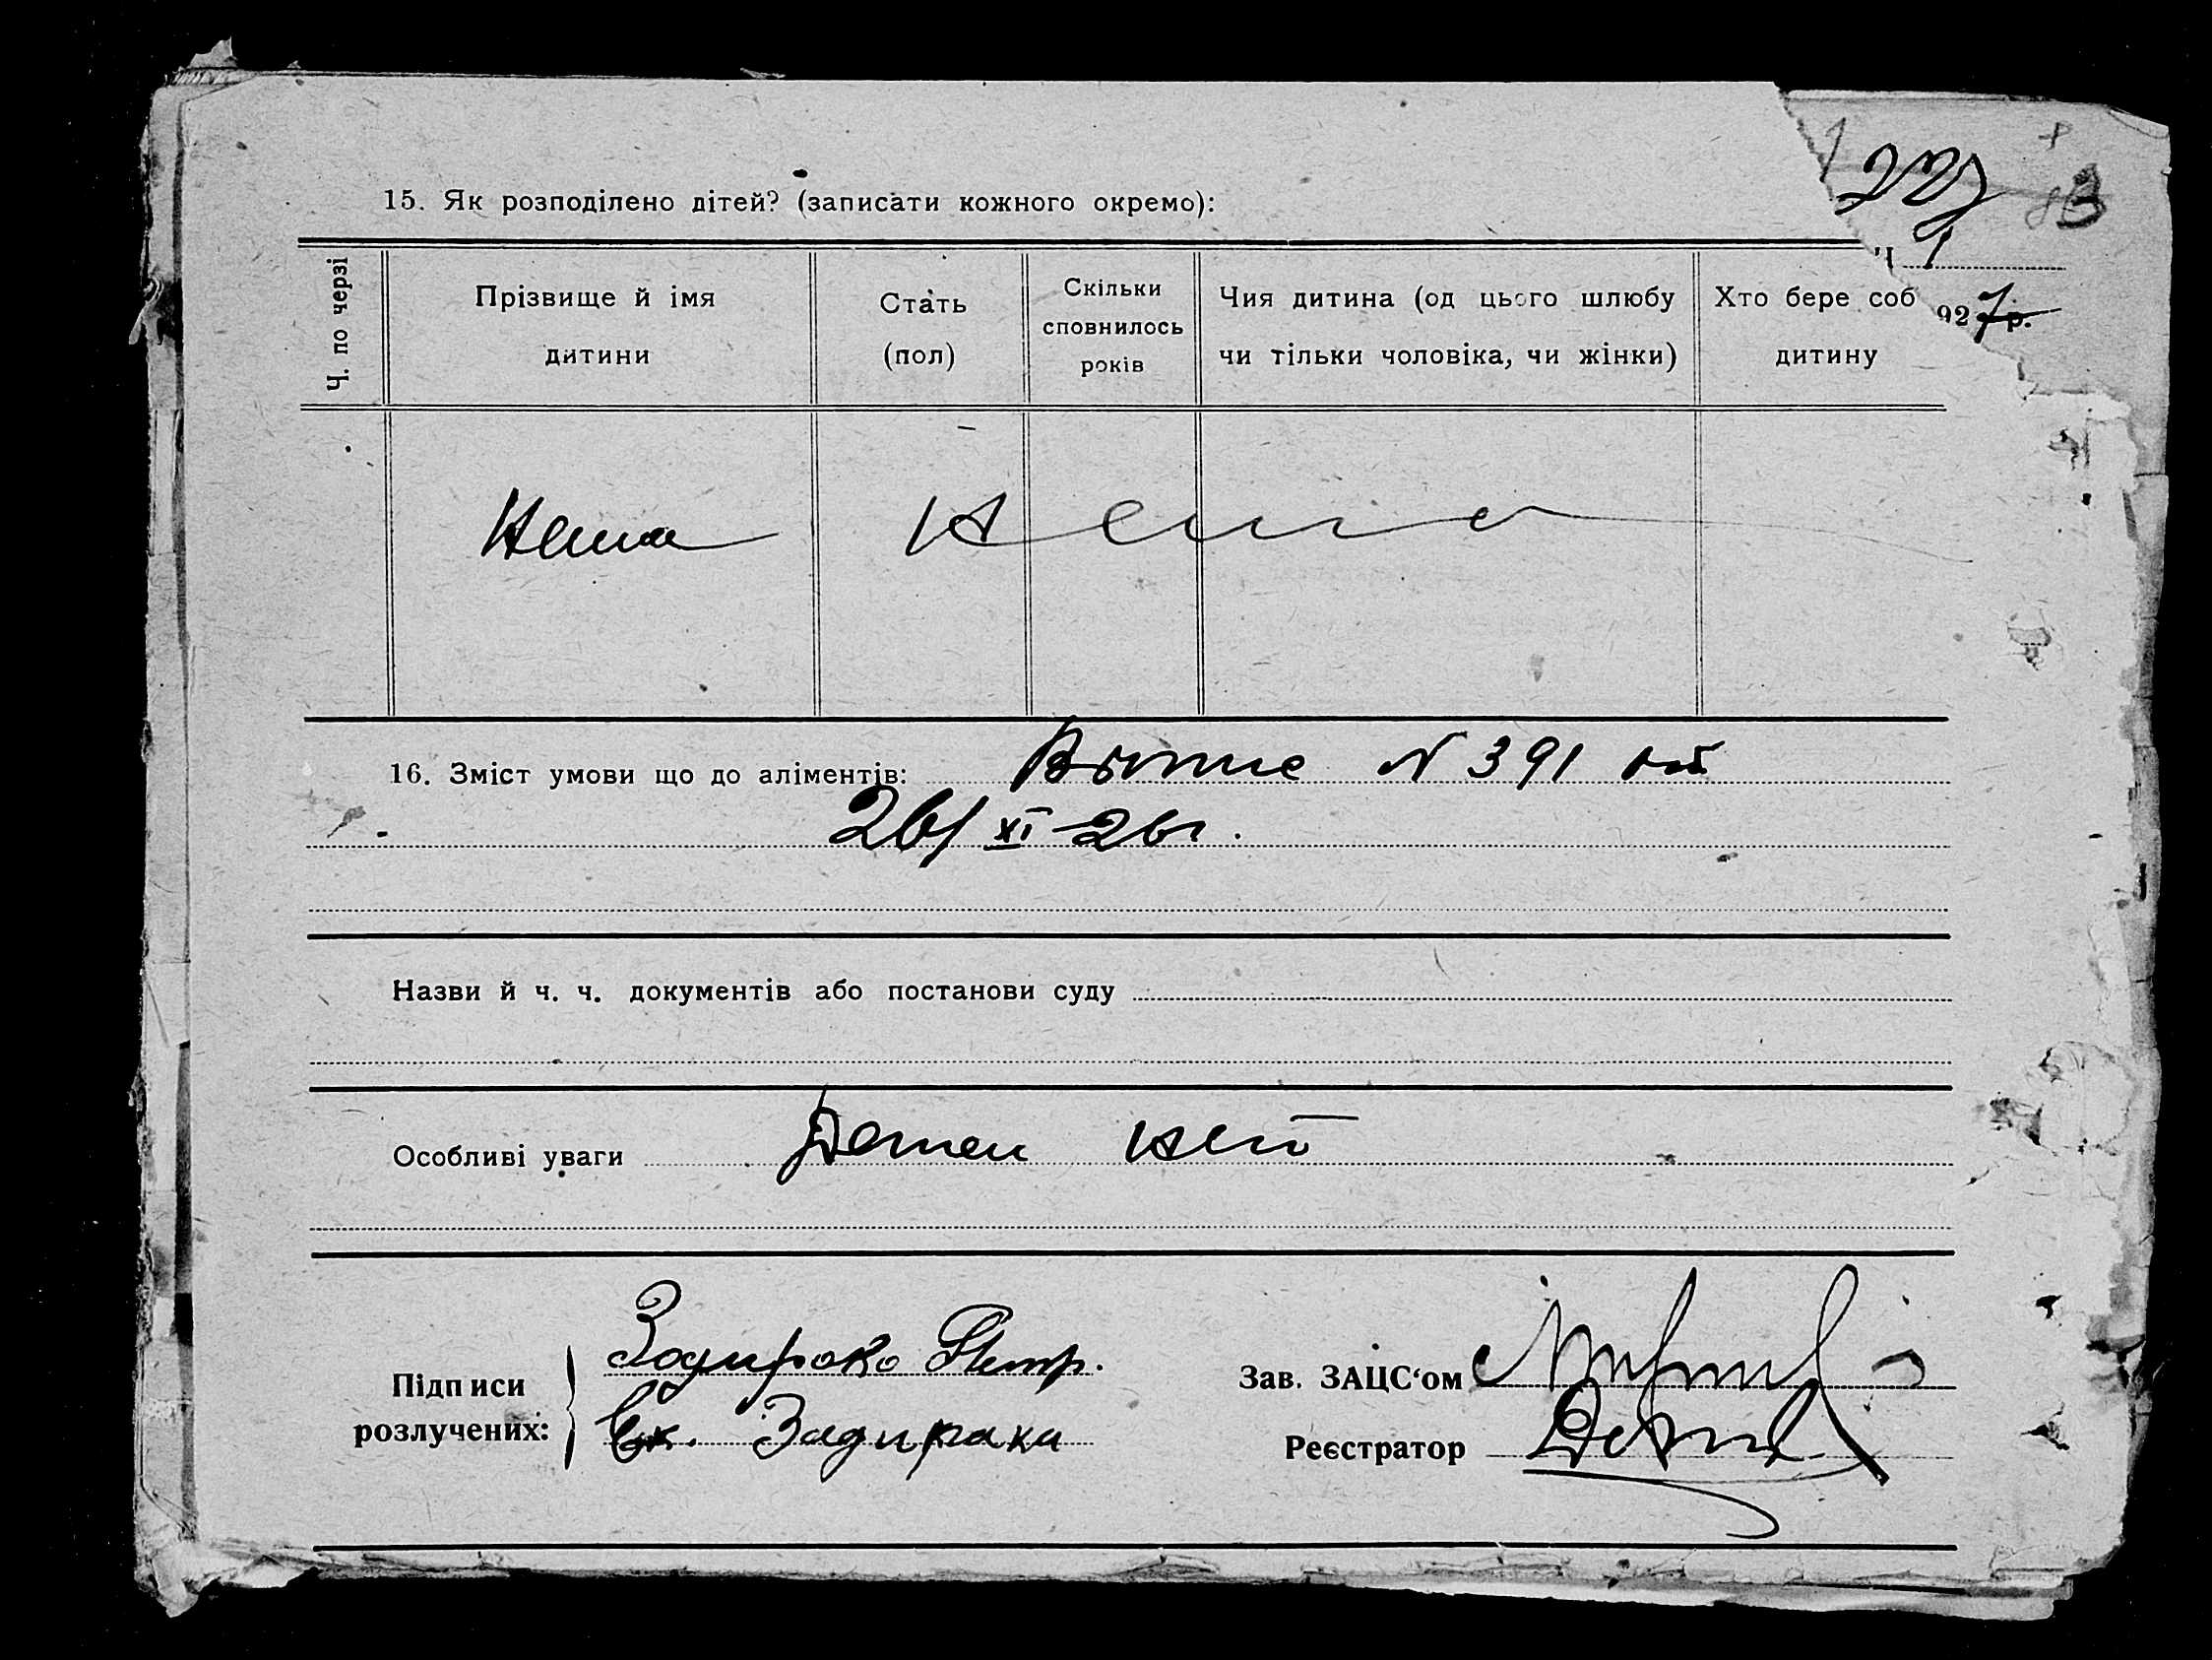 15. Як розподілено дітей? (записати кожного окремо):
227
83
Ч 1
927 р.
Ч. по черзі
Прізвище й імя дитини
Стать (пол)
Скільки сповнилось років
Чия дитина (од цього шлюбу чи тільки чоловіка, чи жінки)
Хто бере соб дитину
Нема Нема
16. Зміст умови що до аліментів: N 391
26/XI-26г.
Назви й ч. ч. документів або постанови суду
Особливі уваги Детей нет
Підписи розлучених:
Задирако Петр.
Ек. Задирака
Зав. ЗАЦС‘ом
Реєстратор